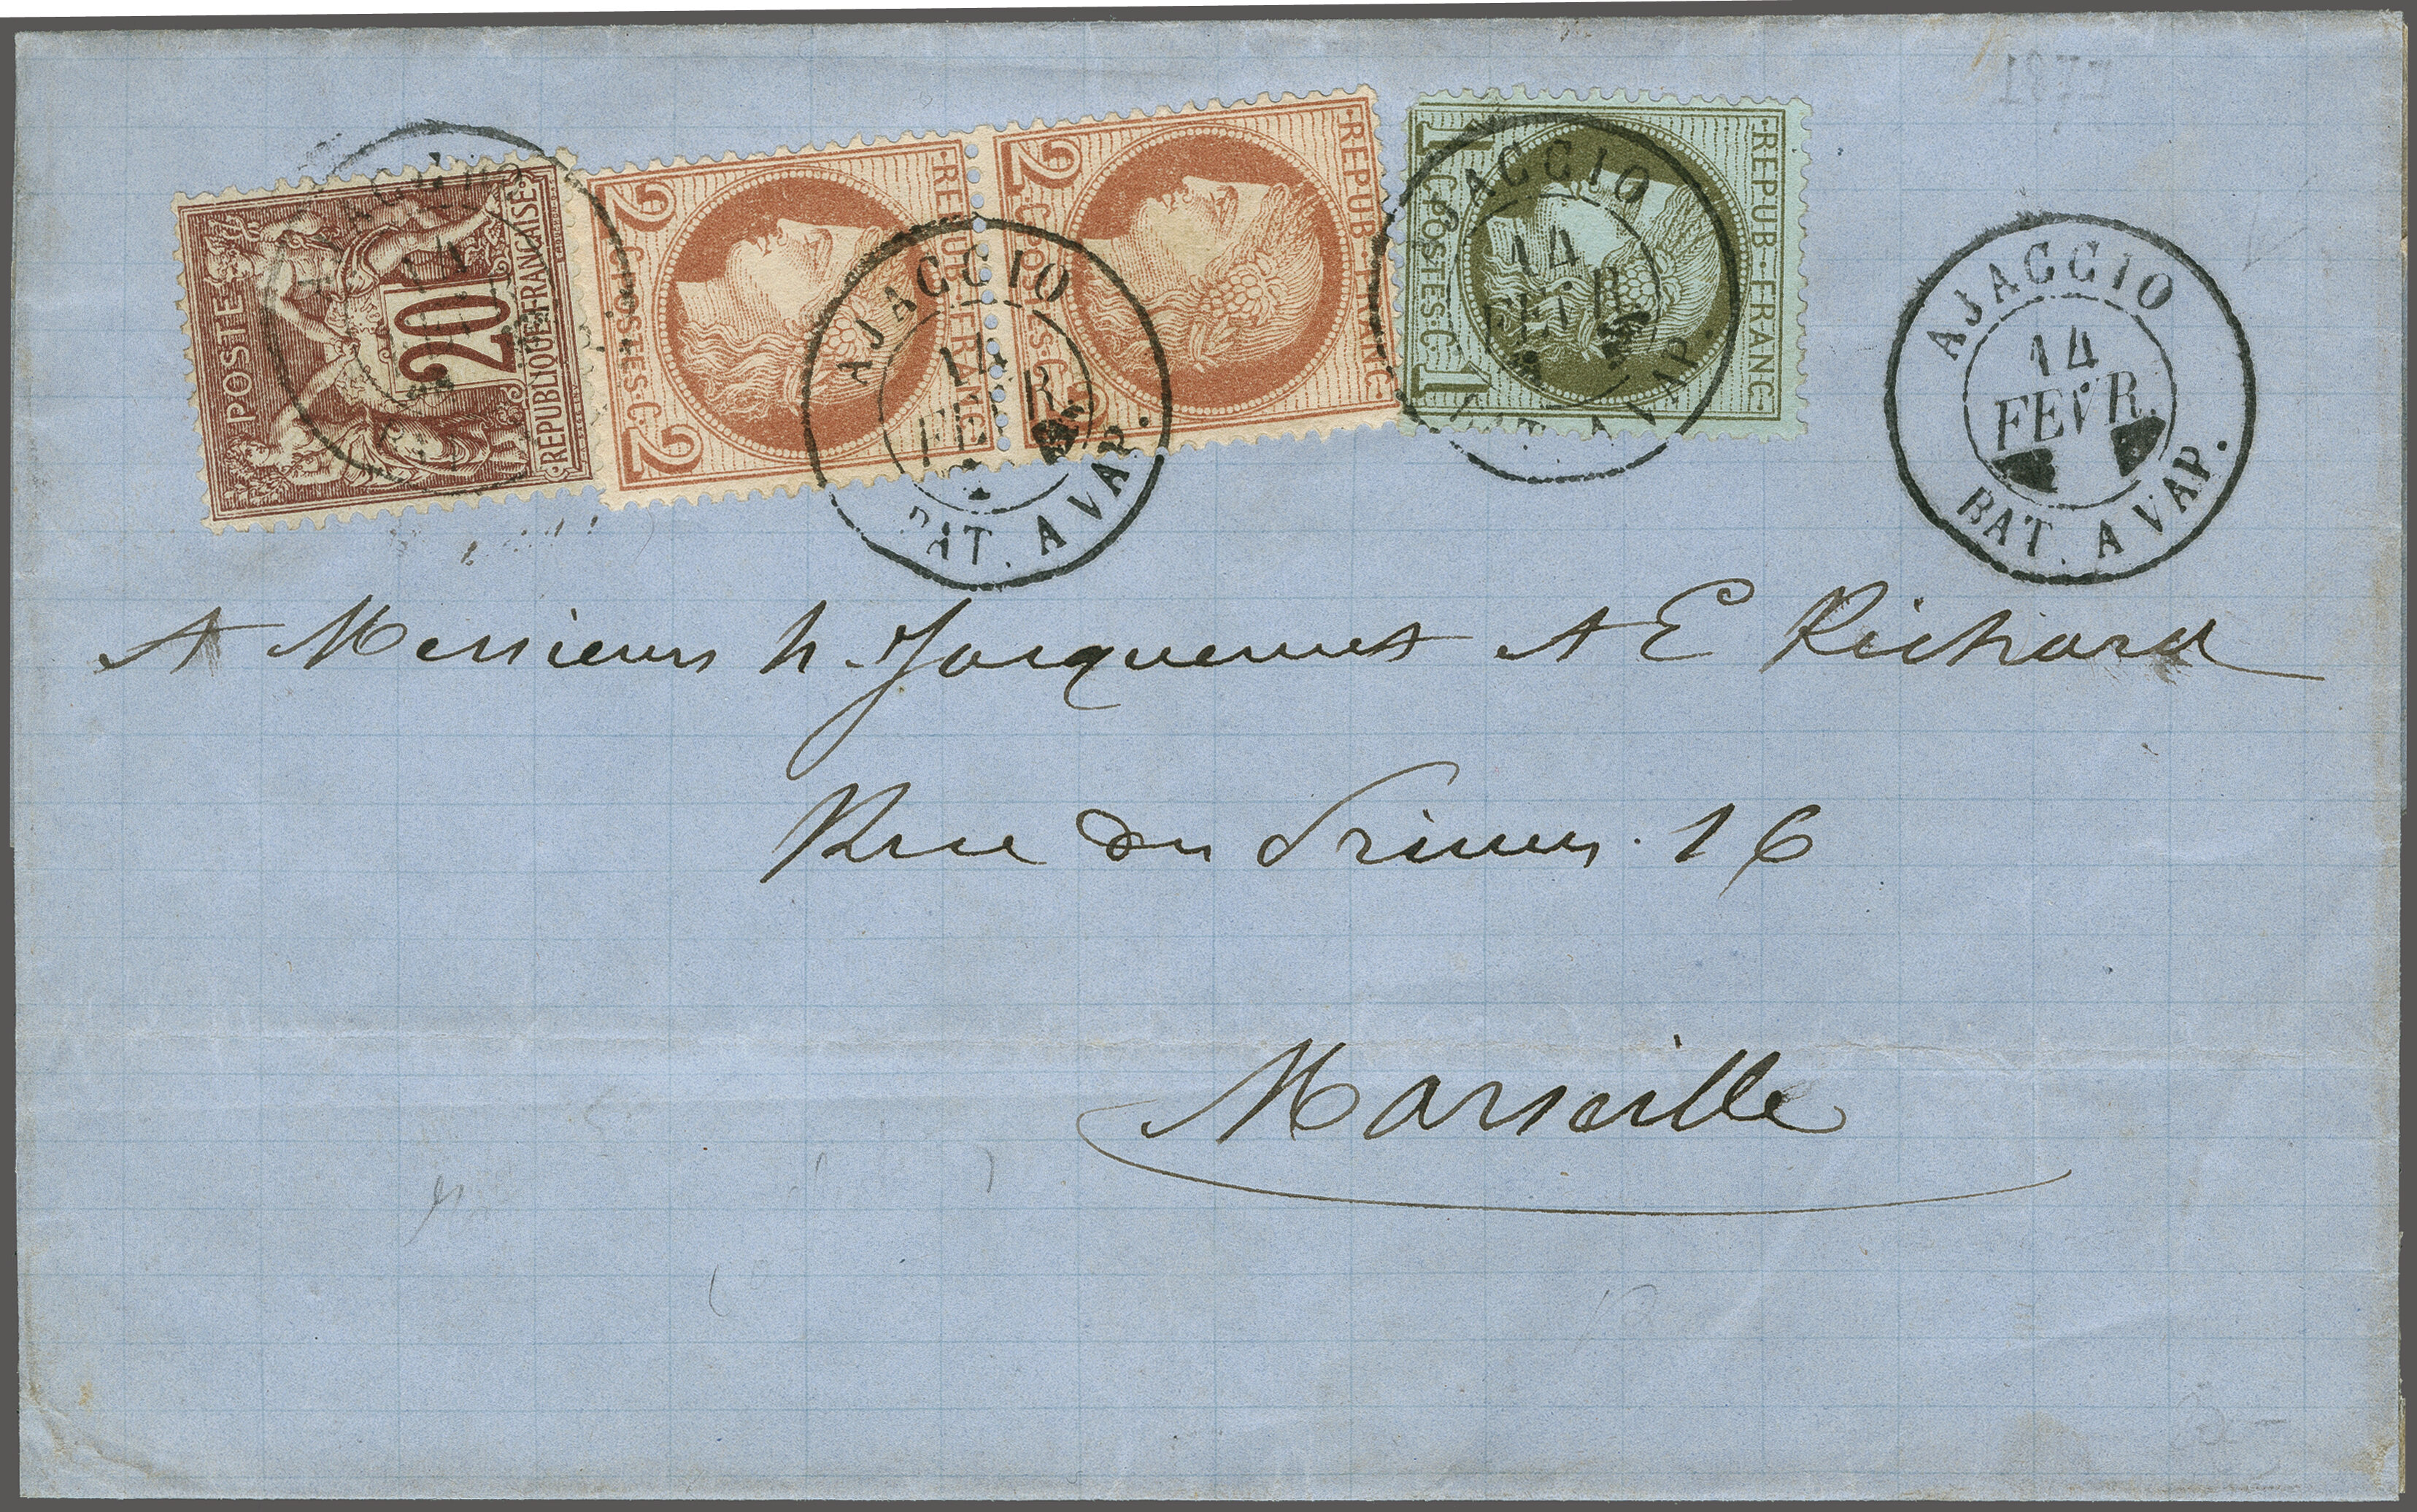 POSTES
20
REPUBLIQUE FRANCAISE
REPUB·FRANC·
2·C·POSTES·C·2
REPUB·FRANC·
2·C·POSTES·C·2
REPUB·FRANC·
1·C·POSTES·C·1
AJACCIO
14
FEVR.
BAT. A VAP.
AJACCIO
14
FEVR.
BAT. A VAP.
AJACCIO
14
FEVR.
BAT. A VAP.
AJACCIO
14
A Messieurs h. Jacquemet et E Richard
Rue du 16
Marseille